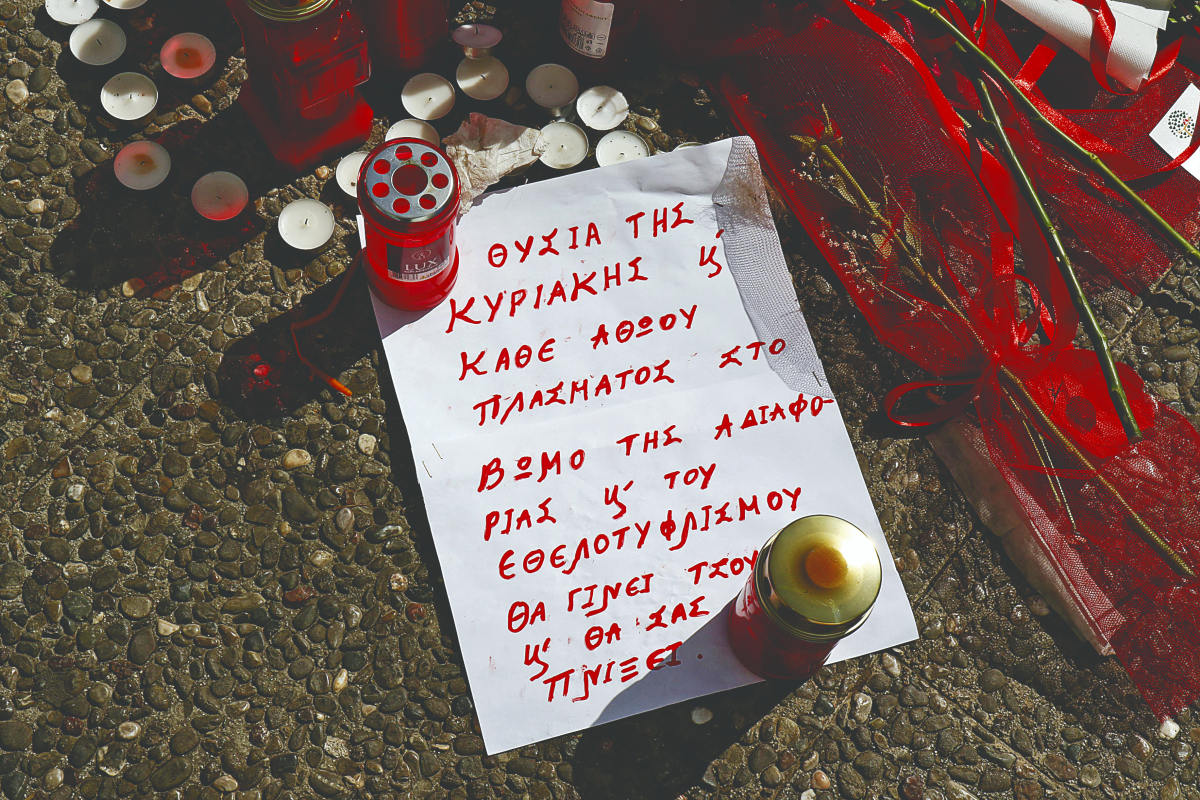 LUX
ΘΥΣΙΑ ΤΗΣ
ΚΥΡΙΑΚΗΣ ϗ
ΚΑΘΕ ΑΘΩΟΥ
ΠΛΑΣΜΑΤΟΣ ΣΤΟ
ΒΩΜΟ ΤΗΣ ΑΔΙΑΦΟ-
ΡΙΑΣ ϗ ΤΟΥ
ΕΘΕΛΟΤΥΦΛΙΣΜΟΥ
ΘΑ ΓΙΝΕΙ ΤΣΟΥ
ϗ ΘΑ ΣΑΣ
ΠΝΙΞΕΙ.